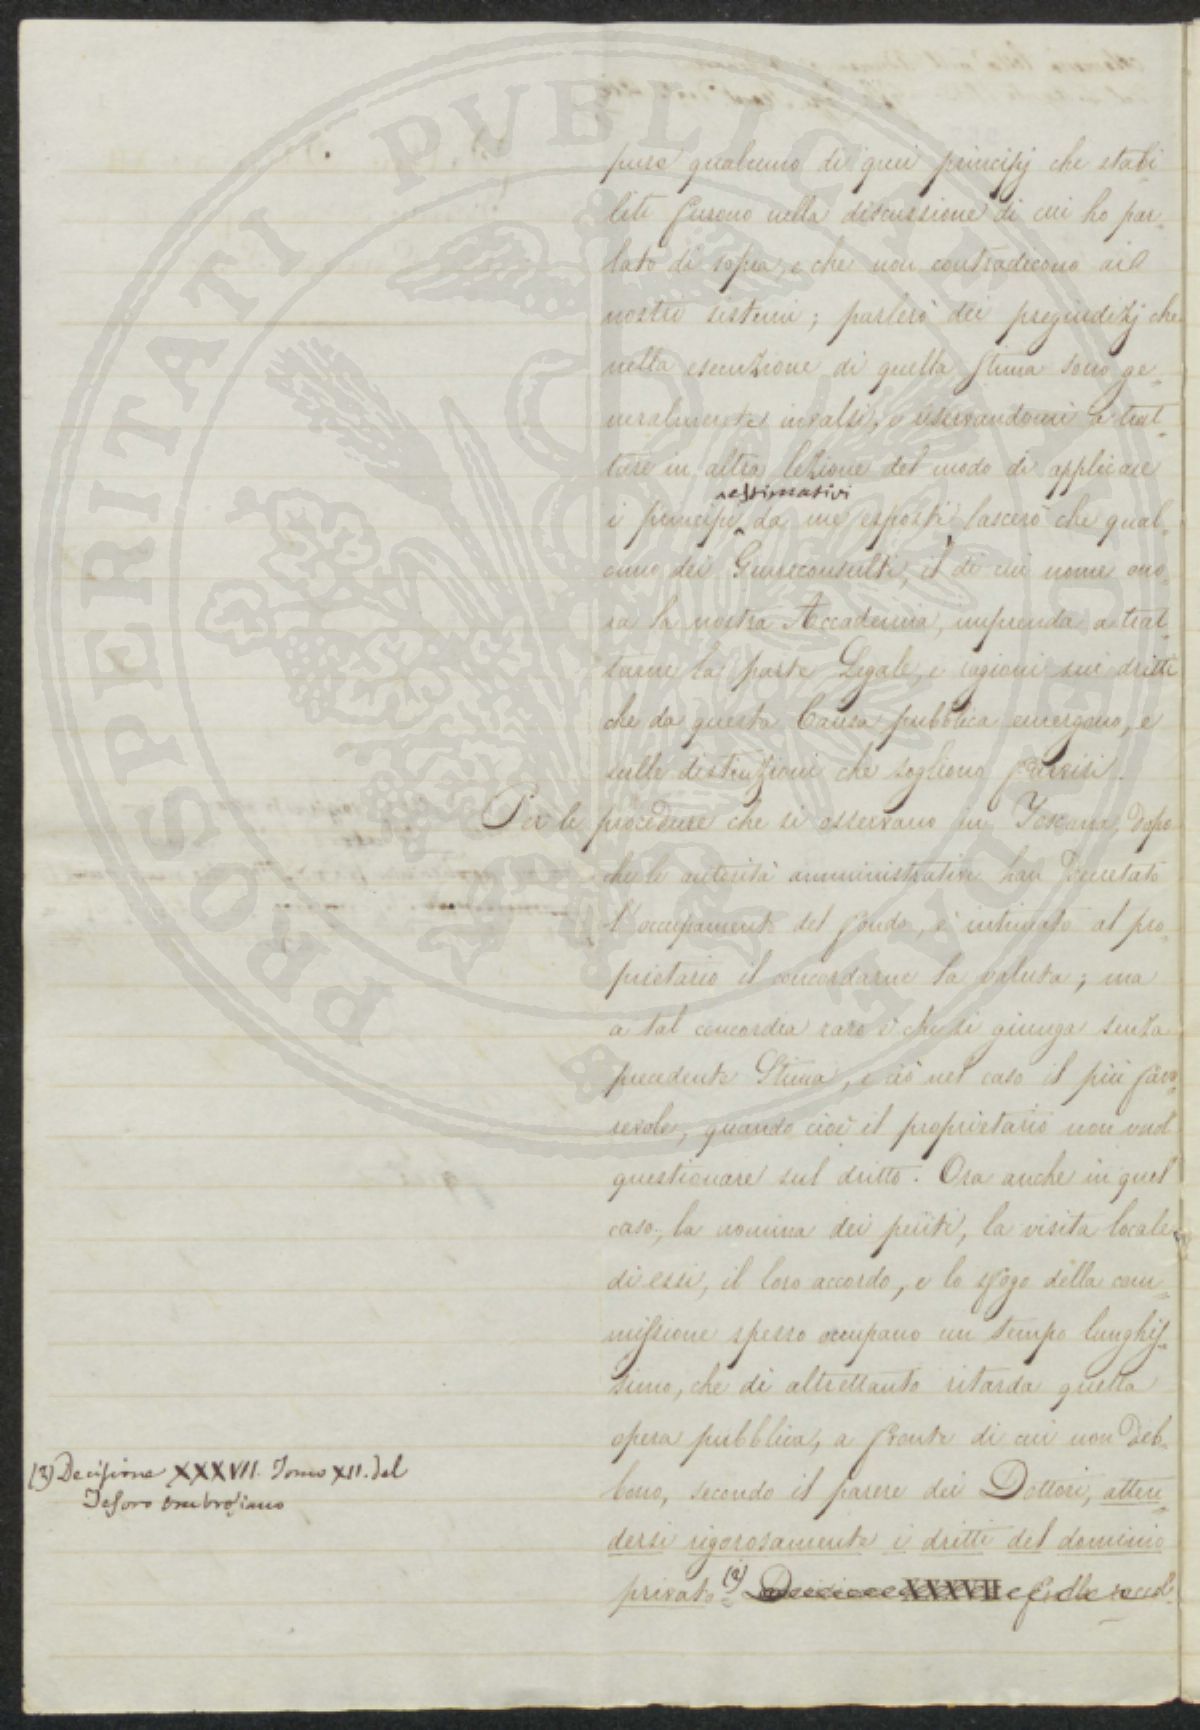 PROSPERITATI PUBLICAE AUGENDAE
pure qualcuno di quei principj che stabi
liti furono nella discussione di cui ho par-
lato di sopra, e che non contradicono ai
nostri sistemi; parlerò dei pregiudizj che
nella esecuzione di quella stima sono ge-
neralmente invalsi, e riservandomi a trat-
tare in altra lezione del modo di applicare
estimativi
i principj da me esposti, lascerò che qual-
cuno dei Giureconsulti, il di cui nome ono-
ra la nostra Accademia, imprenda a trat-
tarne la parte Legale, e ragioni sui dritti
che da questa Causa pubblica emergono, e
sulle distinzioni che sogliono farvisi.
Per le procedure che si osservano in Toscana, dopo
che le autorità amministrative han decretato
l'occupamento del fondo, è intimato al pro-
prietario il concordarne la valuta; ma
a tal concordia raro è che si giunga senza
precedente Stima, e ciò nel caso il più favo-
revole, quando cioè il proprietario non vuol
questionare sul dritto. Ora anche in quel
caso, la nomina dei periti, la visita locale
di essi, il loro accordo, e lo sfogo della com-
missione spesso occupano un tempo lunghis-
simo, che di altrettanto ritarda quella
opera pubblica, a fronte di cui non deb-
bono, secondo il parere dei Dottori, atten-
dersi rigorosamente i dritti del dominio
privato (3) XXXVII
(3) Decisione XXXVII. Tomo XII. del
Tesoro Ombrosiano